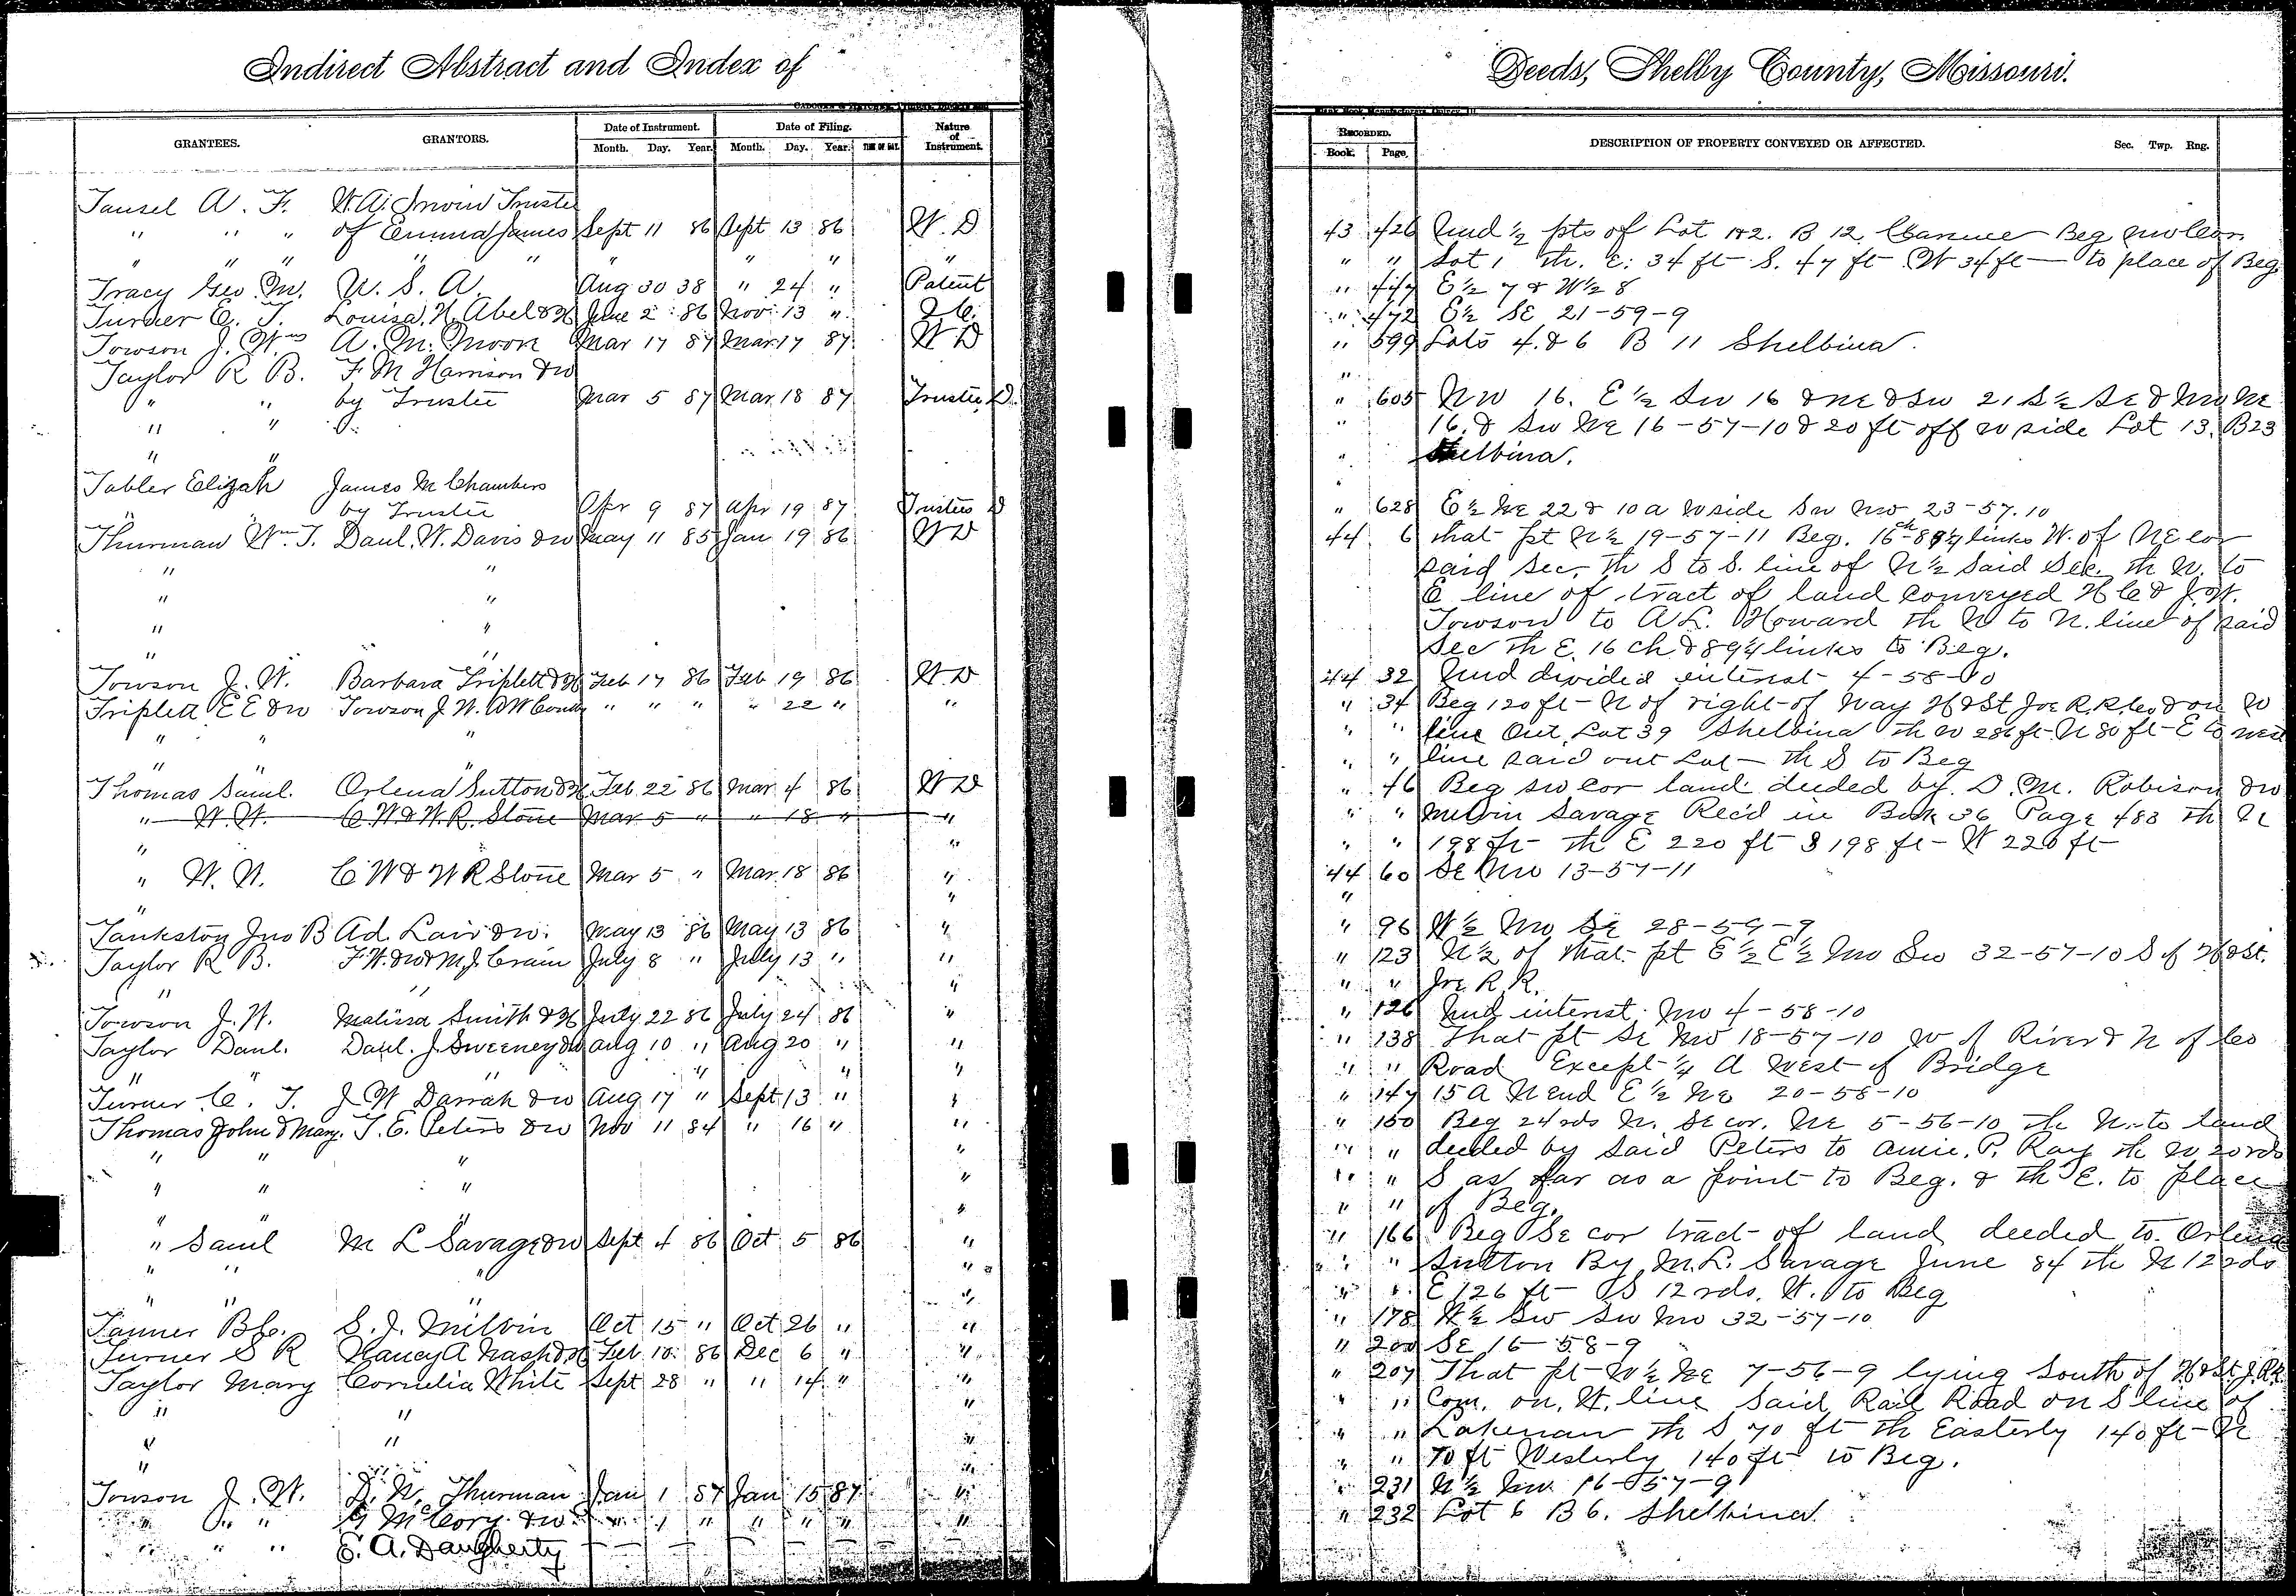 Indirect Abstract and Index of
Deeds, Shelby County, Missouri.
GRANTEES. GRANTORS. Date of Instrument. Date of Filing. Nature of Instrument.
Month. Day. Year. Month. Day. Year. TIME OF DAY.
RECORDED. DESCRIPTION OF PROPERTY CONVEYED OR AFFECTED. Sec. Twp. Rng.
Book. Page.
Tansel A. F. W. A. Irwin Trustee
" " " of Emma James Sept 11 86 Sept 13 86 W. D 43 426 Und ½ pts of Lot 1&2. B 12 Clarence Beg NW Cor
" " " " " " " " Lot 1 th. E. 34 ft S. 47 ft W 34 ft to place of Beg
Tracy Geo. M. U. S. A. Aug 30 38 " 24 " Patent " E½ 7 & W½ 8
Turner C. T. Louisa H. Abel & H June 2 86 Nov. 13 " Q.C. " 472 E½ SE 21-59-9
Towson J. Wm A. M. Moon Mar 17 87 Mar 17 87 W D " 599 Lots 4. & 6 B 11 Shelbina.
Taylor R B. F M Harrison & w "
" " by Trustee Mar 5 87 Mar 18 87 Trustee D. " 605 NW 16. E½ SW 16 & NE & SW 21 S½ SE & NW NE
" " " 16. & SW NE 16-57-10 & 20 ft off W side Lot 13. B23
" " " Shelbina.
Tabler Elizah James M Chambers "
" " by Trustee Apr 9 87 Apr 19 87 Trustees D " 628 E½ NE 22 & 10 a W side SW NW 23-57.10
Thurman Wm T. Danl. W. Davis & w May 11 85 Jan 19 86 W D 44 6 that pt N½ 19-57-11 Beg. 16 ch 89¼ links W. of NE cor
" " said Sec. th S to S. line of N½ said Sec. th W. to
" " E line of tract of land conveyed H C & J. W.
" " Towson to A L. Howard th N to N. line of said
" " Sec th E. 16 ch & 89¼ links to Beg.
Towson J. W. Barbara Triplett & H Feb 17 86 Feb 19 86 W D 44 32 Und divided interest 4-58-10
Triplett E E & w Towson J. W. & W " " " " 22 " " " 34 Beg 120 ft N of right of Way H & St Joe R.R. Co & on W
" " " " " line Out Lot 39 Shelbina th W 286 ft N 80 ft E to west
" " " " " line said out Lot th S to Beg
Thomas Saml. Orlena Sutton & H Feb 22 86 Mar 4 86 W D " 46 Beg SW cor land deeded by D. M. Robison & w
" W. W. C. W & W. R. Stone Mar 5 " " 18 " " " " Melvin Savage Rec'd in Book 36 Page 483 th N
" " " " 198 ft th E 220 ft S 198 ft W 220 ft
" W. W. C W & W R Stone Mar 5 " Mar 18 86 " 44 60 SE NW 13-57-11
" " "
Tankston Jno B Ad. Lair & w. May 13 86 May 13 86 " " 96 W½ NW SE 28-59-9
Taylor R B. F. W. & w & M. J. Crain July 8 " July 13 " " " 123 N½ of that pt E½ E½ NW SW 32-57-10 S of H & St.
" " " " " Joe R.R.
Towson J. W. Malissa Smith & H July 22 86 July 24 86 " " 126 Und interest NW 4-58-10
Taylor Danl. Danl. J. Sweeney & w Aug 10 " Aug 20 " " " 138 That pt SE NW 18-57-10 W of River & N of Co
" " " " " " " " Road Except ¼ A West of Bridge
Turner C. T. J W Darrah & w Aug 17 " Sept 13 " " " 147 15 A N end E½ NE 20-58-10
Thomas John & Mary. T. E. Peters & w Nov 11 84 " 16 " " " 150 Beg 24 rds N. SE cor. NE 5-56-10 th N. to land
" " " " " " deeded by said Peters to P. Ray th W 20 rds
" " " " " " S as far as a point to Beg. & th E. to place
" " " " " " of Beg.
" Saml M L Savage & w Sept 4 86 Oct 5 86 " " 166 Beg SE cor tract of land deeded to Orlena
" " " " " " Sutton By M. L. Savage June 84 th N 12 rds
" " " " " " E 126 ft S 12 rds. W. to Beg
Tanner B. C. S. J. Melvin Oct 15 " Oct 26 " " " 178 W½ SW SW NW 32-57-10
Turner S R Nancy A Nash & H Feb 10. 86 Dec 6 " " " 200 SE 16-58-9
Taylor Mary Cornelia White Sept 28 " " 14 " " " 207 That pt W½ NE 7-56-9 lying South of H & St. J. R.R.
" " " " " Com. on. W. line said Rail Road on S line of
" " " " " Lakenan th S 70 ft th Easterly 140 ft N
" " " " " 70 ft Westerly 140 ft to Beg.
Towson J. W. D. N. Thurman Jan 1 87 Jan 15 87 " " 231 N½ NW 16-57-9
" " " McCory & w " 1 " " " " " " 232 Lot 6 B 6. Shelbina
" " " E. A. Daugherty